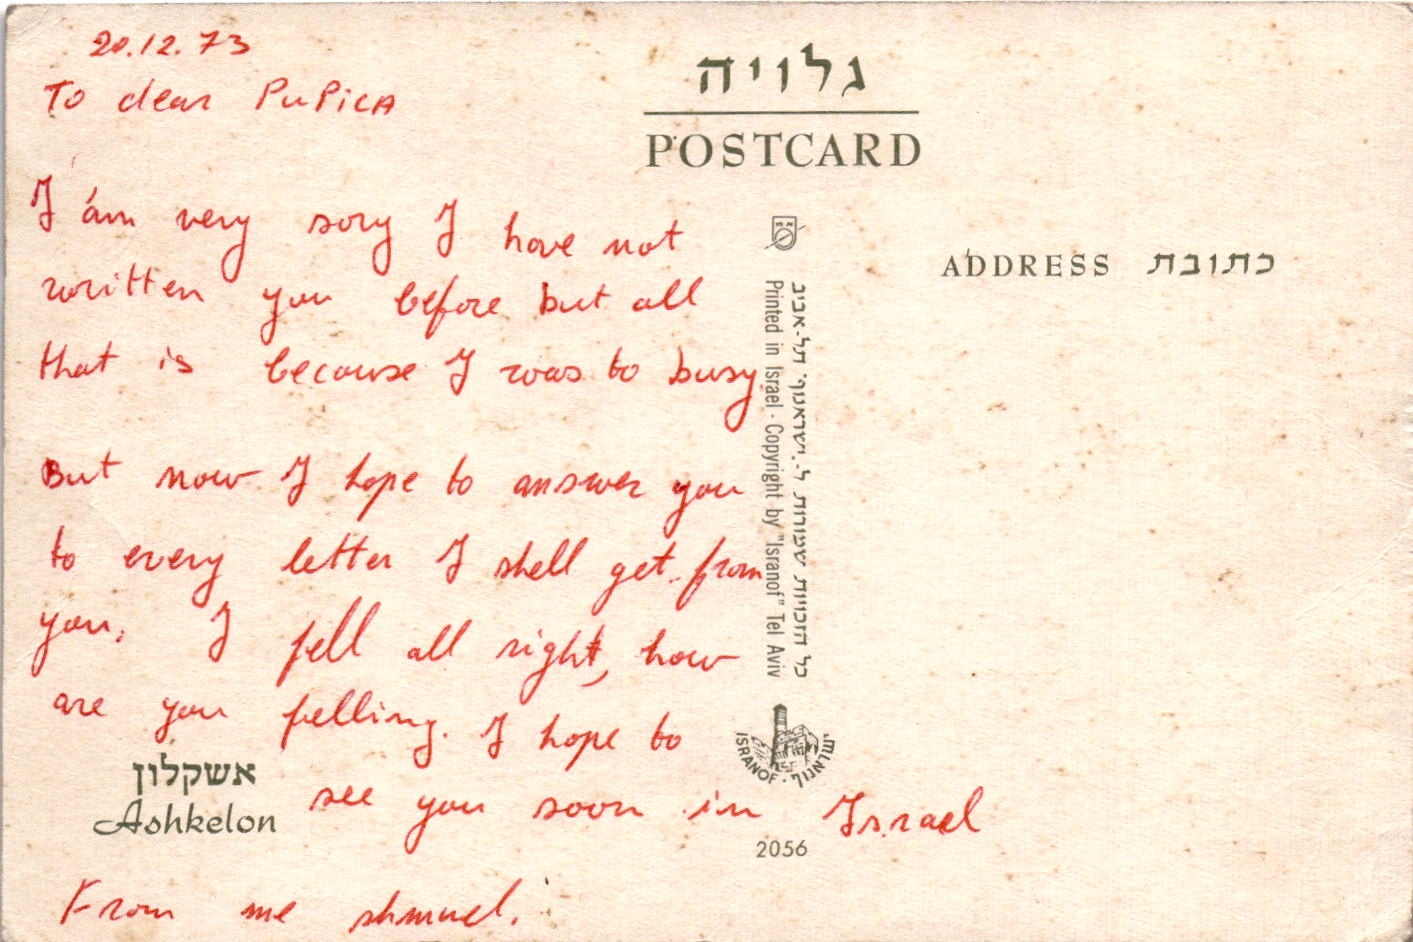 20.12.73
To dear PuPicA
I ám very sory I have not
written you before but all
that is because I was to busy.
But now I hope to answer you
to every letter I shell get from
you, I fell all right, how
are you felling. I hope to
see you soon in Israel
From me shmuel.
אשקלון
Ashkelon
גלויה
POSTCARD
ADDRESS כתובת
כל הזכויות שמורות ל-"ישראנוף" תל-אביב
Printed in Israel - Copyright by "Isranof" Tel Aviv
ISRANOF · ישראנוף
2056